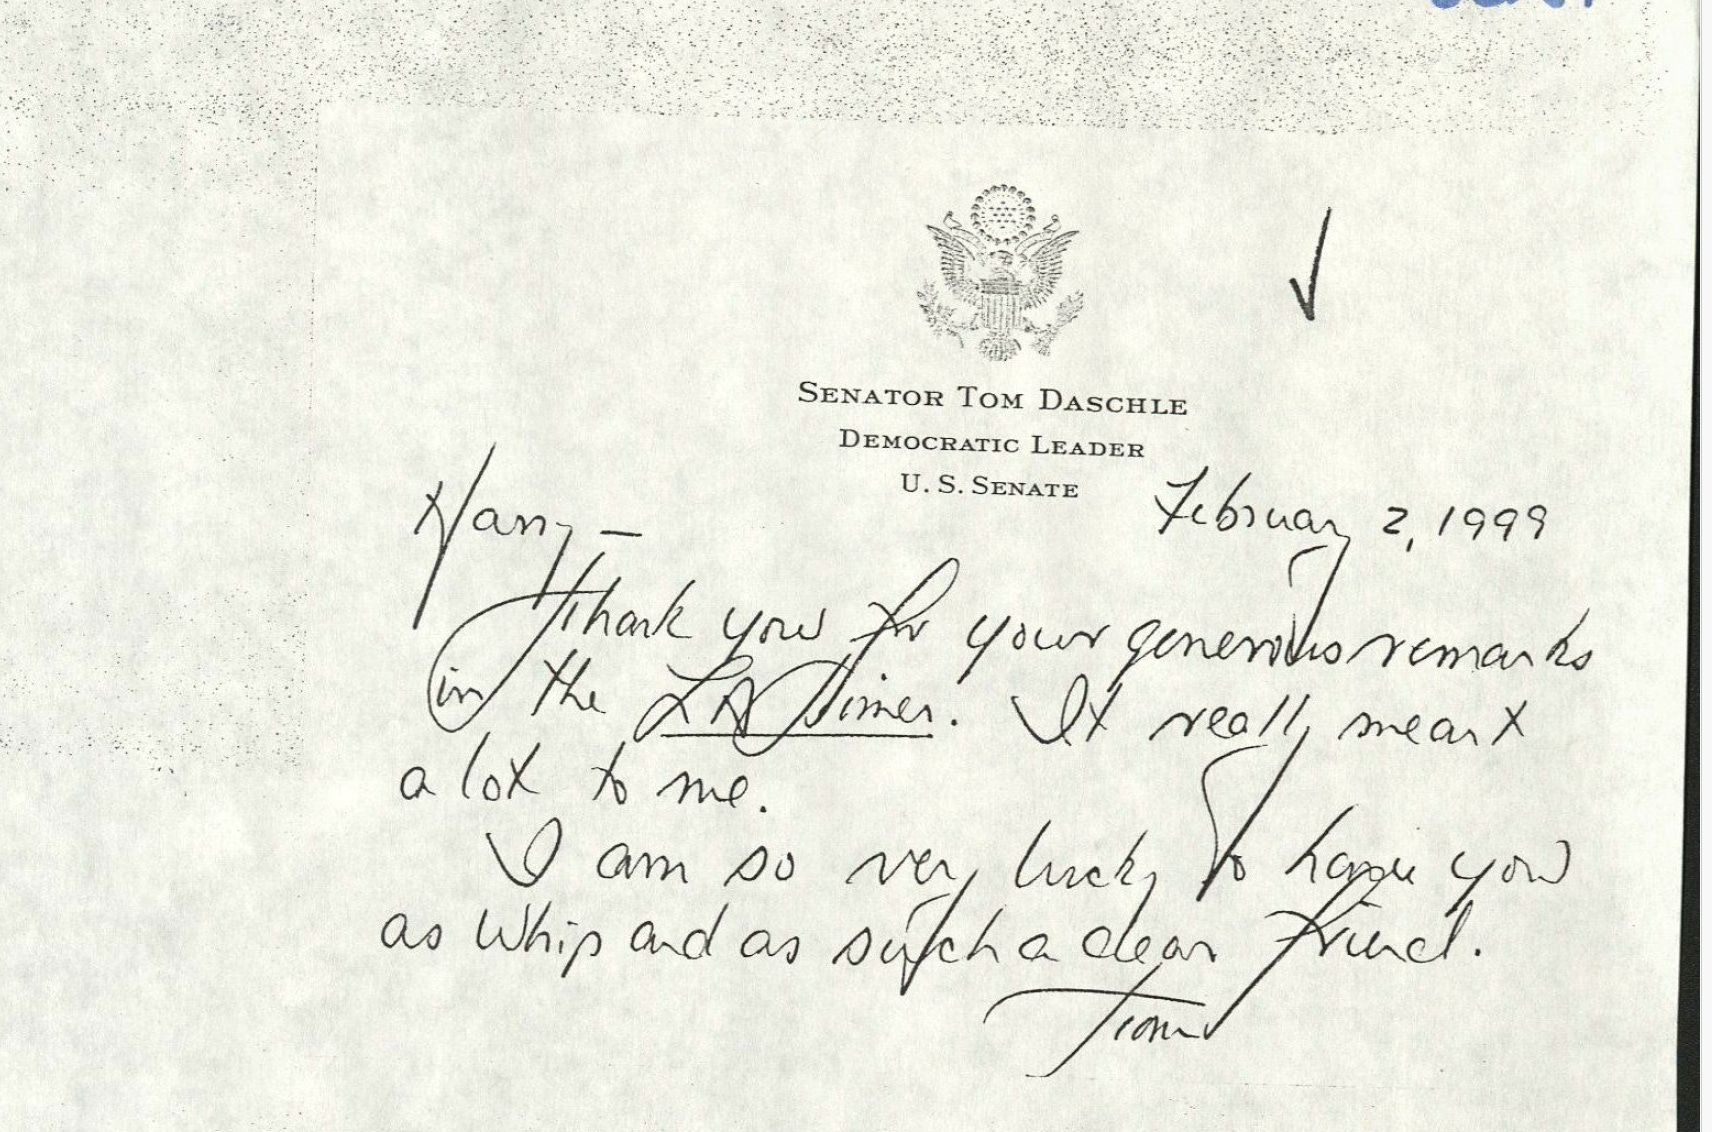 SENATOR TOM DASCHLE
DEMOCRATIC LEADER
U. S. SENATE
February 2, 1999
Harry –
Thank you for your generous remarks
in the LA Times. It really meant
a lot to me.
I am so very lucky to have you
as Whip and as such a dear friend.
Tom